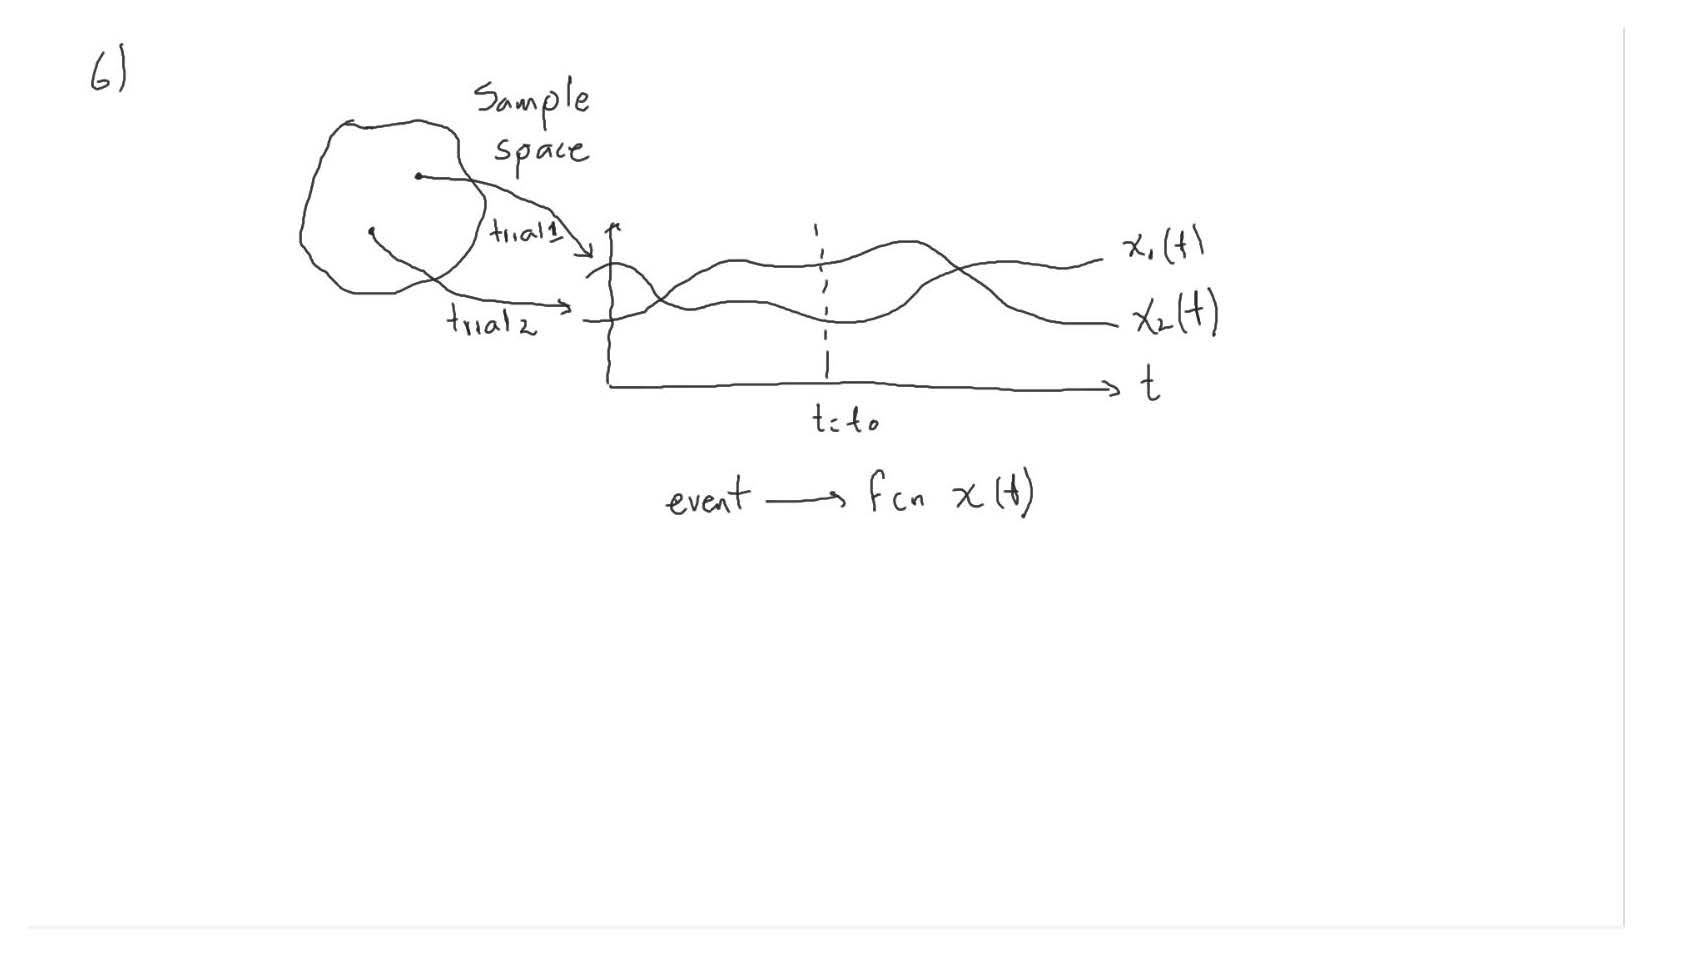 6)
Sample
space
trial 1
trial 2
x₁(t)
x₂(t)
t
t=t₀
event → fcn x(t)